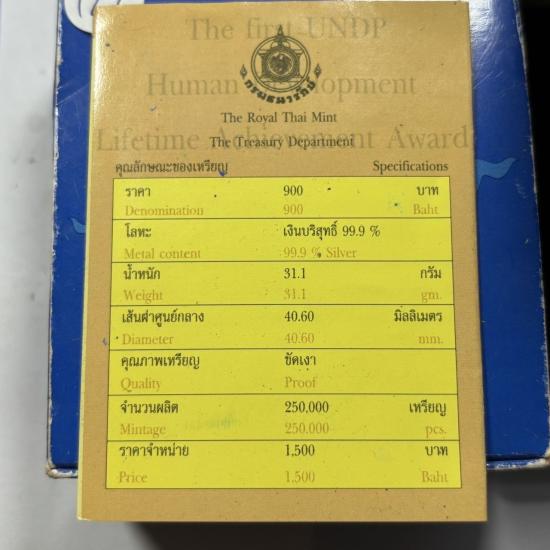 The first UNDP
Human Development
Lifetime Achievement Award
กรมธนารักษ์
The Royal Thai Mint
The Treasury Department
คุณลักษณะของเหรียญ Specifications
ราคา 900 บาท
Denomination 900 Baht
โลหะ เงินบริสุทธิ์ 99.9 %
Metal content 99.9 % Silver
น้ำหนัก 31.1 กรัม
Weight 31.1 gm.
เส้นผ่าศูนย์กลาง 40.60 มิลลิเมตร
Diameter 40.60 mm.
คุณภาพเหรียญ ขัดเงา
Quality Proof
จำนวนผลิต 250,000 เหรียญ
Mintage 250,000 pcs.
ราคาจำหน่าย 1,500 บาท
Price 1,500 Baht